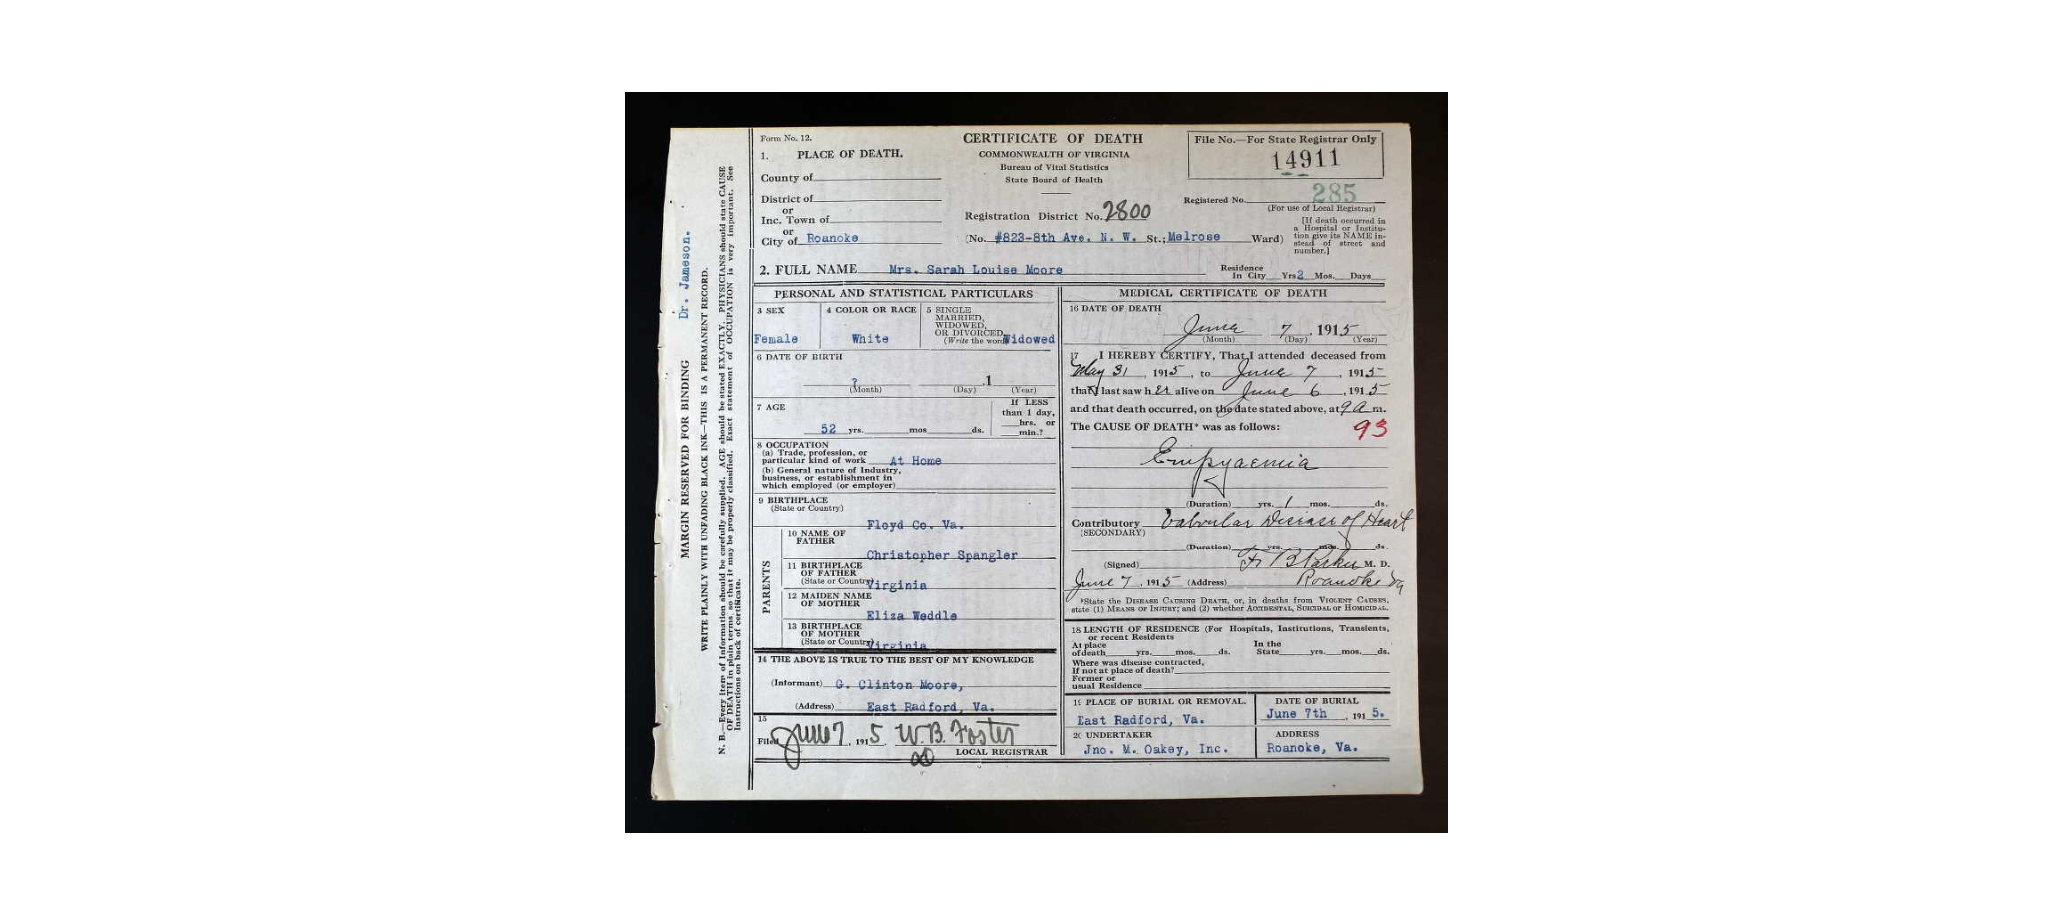 Form No. 12.
CERTIFICATE OF DEATH
COMMONWEALTH OF VIRGINIA
Bureau of Vital Statistics
State Board of Health
File No.—For State Registrar Only
14911
1. PLACE OF DEATH.
County of
District of
or
Inc. Town of
or
City of Roanoke
Registration District No. 2800
(No. #823-8th Ave. N. W. St.; Melrose Ward)
Registered No. 285
(For use of Local Registrar)
[If death occurred in
a Hospital or Institu-
tion give its NAME in-
stead of street and
number.]
2. FULL NAME Mrs. Sarah Louise Moore
Residence
In City Yrs 2 Mos. Days
PERSONAL AND STATISTICAL PARTICULARS
3 SEX
Female
4 COLOR OR RACE
White
5 SINGLE
MARRIED,
WIDOWED,
OR DIVORCED
(Write the word) Widowed
6 DATE OF BIRTH
? .1
(Month) (Day) (Year)
7 AGE
52 yrs. mos ds.
If LESS
than 1 day,
hrs. or
min.?
8 OCCUPATION
(a) Trade, profession, or
particular kind of work At Home
(b) General nature of Industry,
business, or establishment in
which employed (or employer)
9 BIRTHPLACE
(State or Country)
Floyd Co. Va.
PARENTS
10 NAME OF
FATHER
Christopher Spangler
11 BIRTHPLACE
OF FATHER
(State or Country) Virginia
12 MAIDEN NAME
OF MOTHER
Eliza Weddle
13 BIRTHPLACE
OF MOTHER
(State or Country) Virginia
14 THE ABOVE IS TRUE TO THE BEST OF MY KNOWLEDGE
(Informant) G. Clinton Moore,
(Address) East Radford, Va.
15
Filed June 7, 1915 W.B. Foster
LOCAL REGISTRAR
MEDICAL CERTIFICATE OF DEATH
16 DATE OF DEATH
June 7, 1915
(Month) (Day) (Year)
17 I HEREBY CERTIFY, That I attended deceased from
May 31, 1915, to June 7, 1915
that I last saw her alive on June 6, 1915
and that death occurred, on the date stated above, at 9 a m.
The CAUSE OF DEATH* was as follows:
93
Empyaemia
(Duration) yrs. 1 mos. ds.
Contributory Valvular Disease of Heart
(SECONDARY)
(Duration) yrs. mos. ds.
(Signed) F. B Parker M. D.
June 7, 1915 (Address) Roanoke Va
*State the DISEASE CAUSING DEATH, or, in deaths from VIOLENT CAUSES,
state (1) MEANS OF INJURY; and (2) whether ACCIDENTAL, SUICIDAL or HOMICIDAL.
18 LENGTH OF RESIDENCE (For Hospitals, Institutions, Transients,
or recent Residents
At place
of death yrs. mos. ds.
In the
State yrs. mos. ds.
Where was disease contracted,
If not at place of death?
Former or
usual Residence
19 PLACE OF BURIAL OR REMOVAL.
East Radford, Va.
DATE OF BURIAL
June 7th, 1915.
20 UNDERTAKER
Jno. M. Oakey, Inc.
ADDRESS
Roanoke, Va.
Dr. Jameson.
MARGIN RESERVED FOR BINDING
WRITE PLAINLY WITH UNFADING BLACK INK—THIS IS A PERMANENT RECORD.
N. B.—Every item of Information should be carefully supplied. AGE should be stated EXACTLY. PHYSICIANS should state CAUSE
OF DEATH in plain terms, so that it may be properly classified. Exact statement of OCCUPATION is very important. See
Instructions on back of certificate.